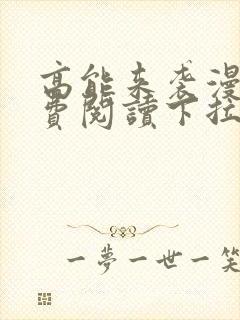 高能来袭漫
费阅读下拉
一夢一世一笑